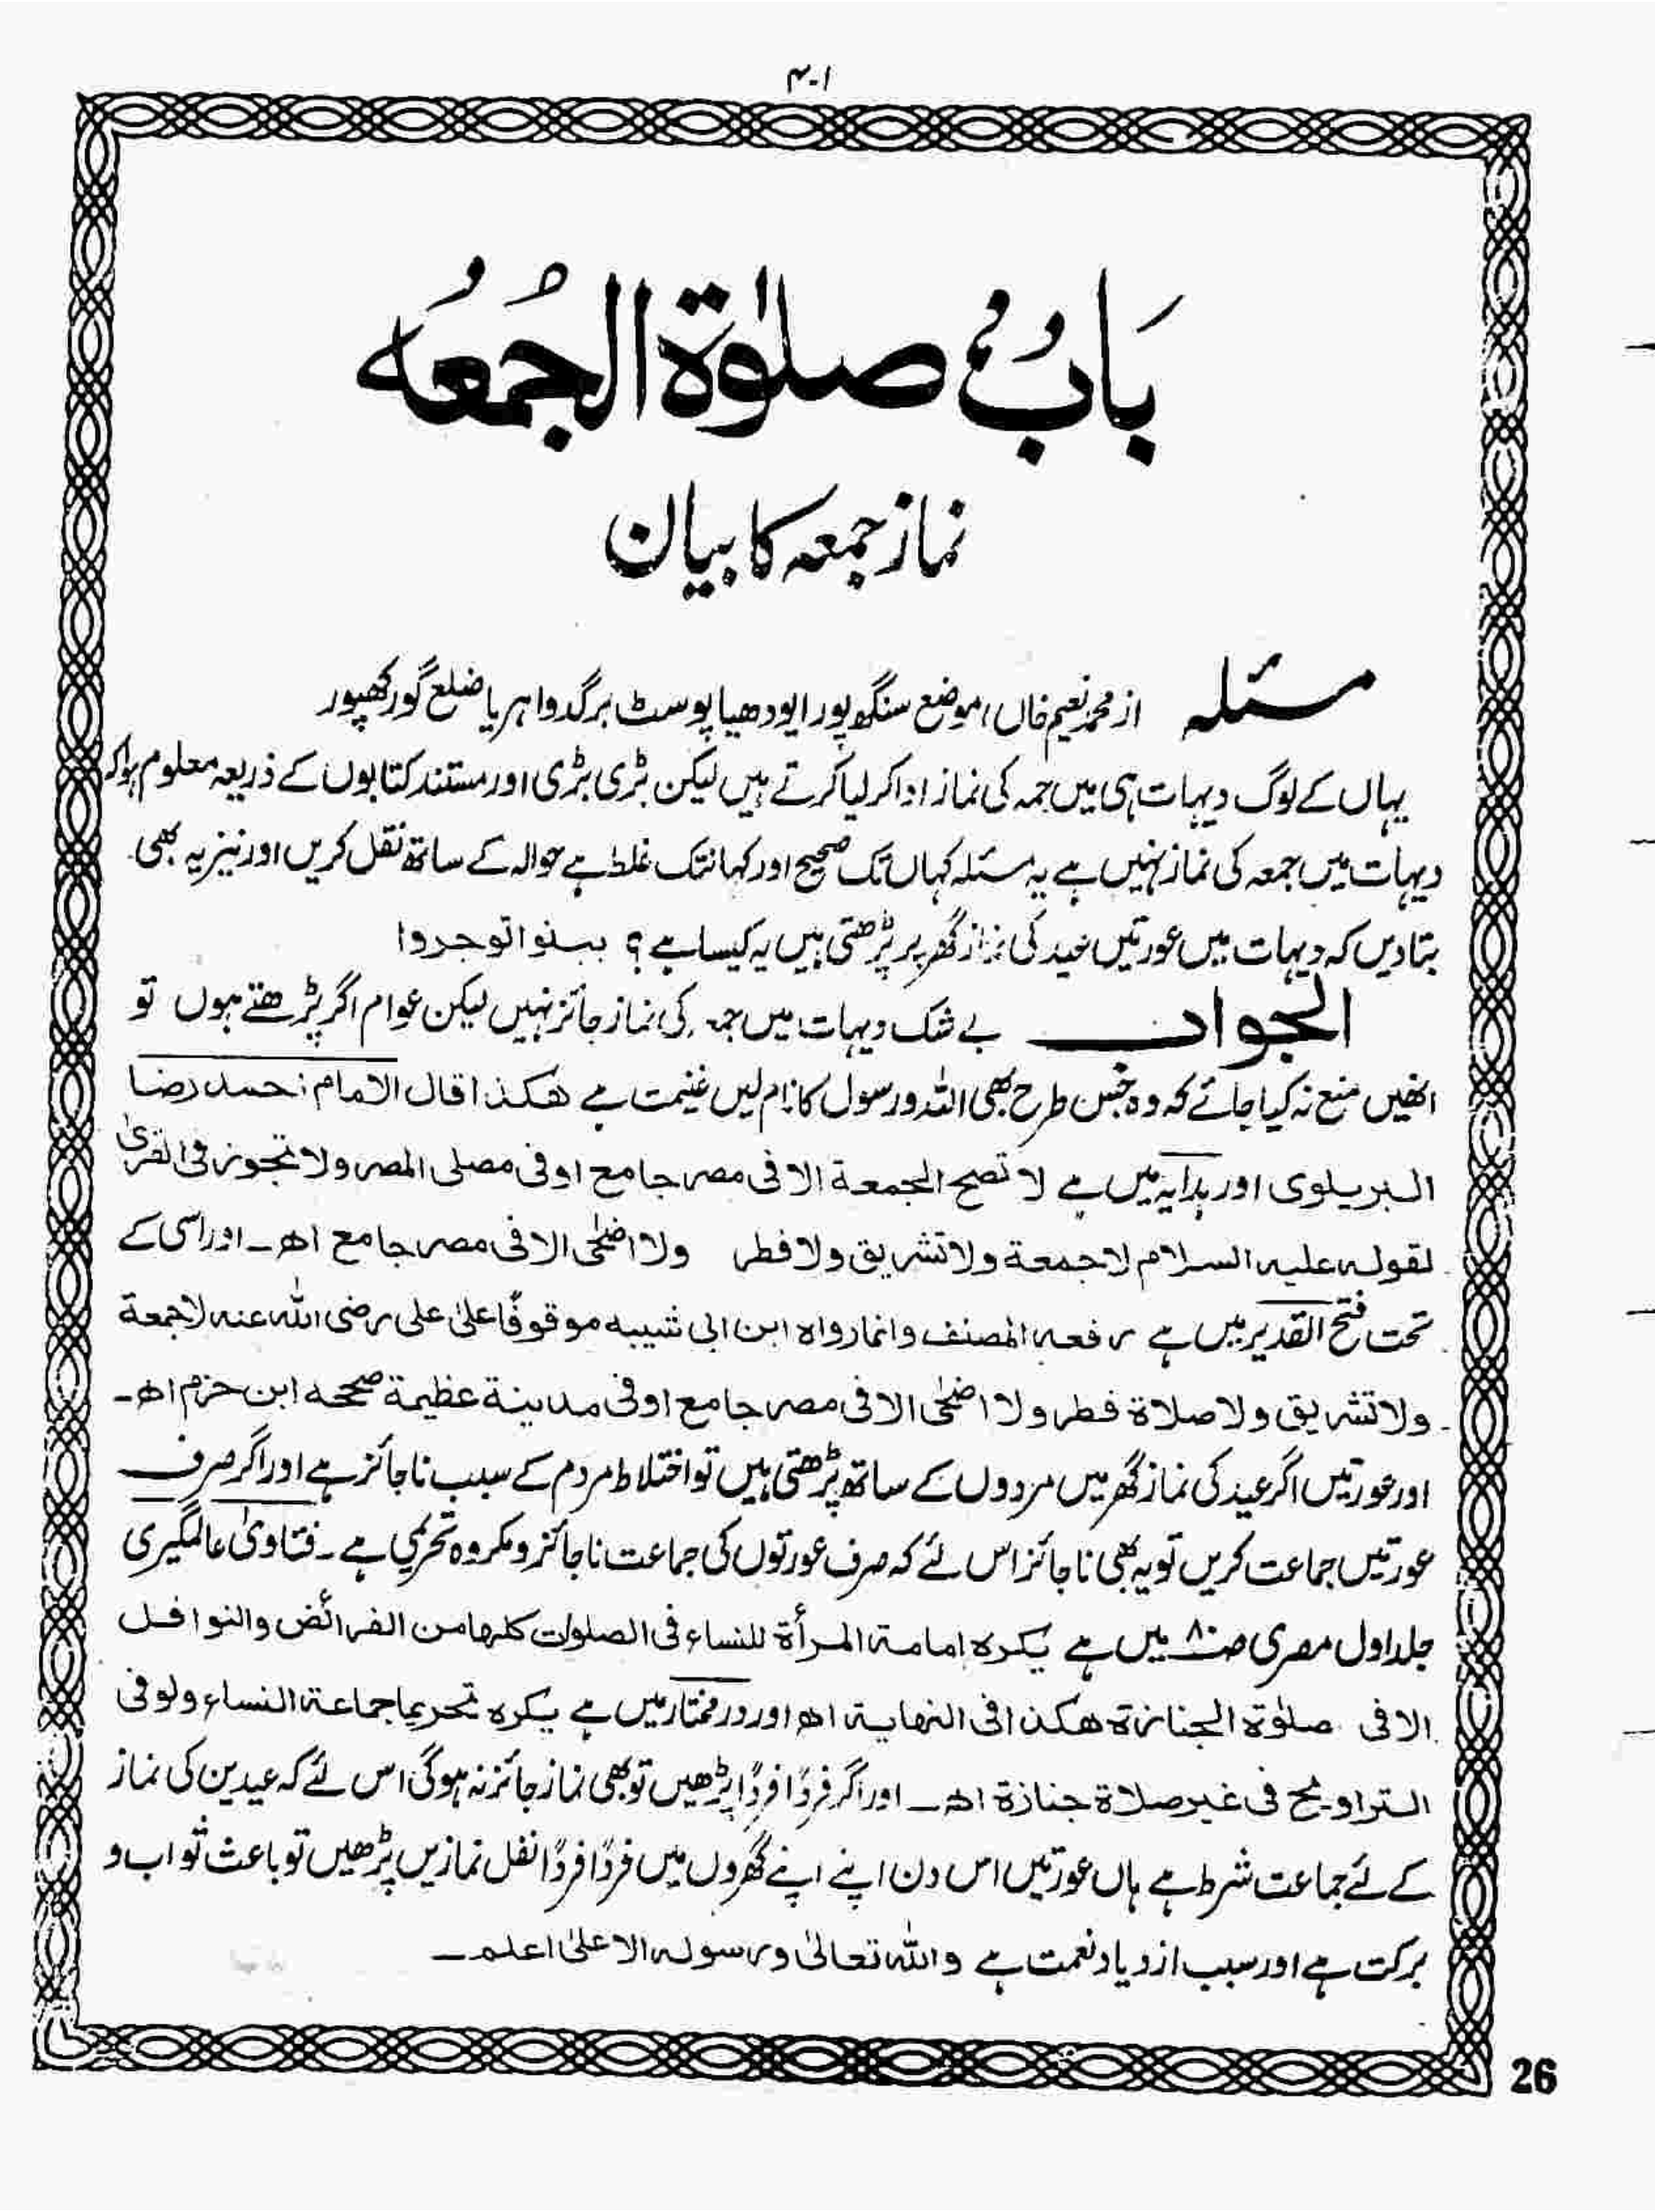 ۴۰۱
بَابُ صلوٰۃ الجُمعُہ
نماز جمعہ کا بیان
مسئلہ از محمد نعیم خاں، موضع سنگھ پور ایودھیا پوسٹ برگدوا ہریا ضلع گورکھپور
یہاں کے لوگ دیہات ہی میں جمہ کی نماز ادا کر لیا کرتے ہیں لیکن بڑی بڑی اور مستند کتابوں کے ذریعہ معلوم ہوا کہ
دیہات میں جمعہ کی نماز نہیں ہے یہ مسئلہ کہاں تک صحیح اور کہانتک غلط ہے حوالہ کے ساتھ نقل کریں اور نیز یہ بھی
بتا دیں کہ دیہات میں عورتیں عید کی نماز گھر پر پڑھتی ہیں یہ کیسا ہے؟ بینوا توجروا
الجواب بے شک دیہات میں جمعہ کی نماز جائز نہیں لیکن عوام اگر پڑھتے ہوں تو
انھیں منع نہ کیا جائے کہ وہ جس طرح بھی اللہ ورسول کا نام لیں غنیمت ہے ھکذا قال الامام احمد رضا
البریلوی اور ہدایہ میں ہے لا تصح الجمعة الا فی مصر جامع او فی مصلی المصر ولا تجوز فی القریٰ
لقولہ علیہ السلام لا جمعة ولا تشریق ولا فطر ولا اضحٰی الا فی مصر جامع اھ۔ اور اسی کے
تحت فتح القدیر میں ہے رفعہ المصنف وانما رواہ ابن ابی شیبہ موقوفًا علیٰ علی رضی اللہ عنہ لا جمعة
ولا تشریق ولا صلاة فطر ولا اضحٰی الا فی مصر جامع او فی مدینة عظیمة صححہ ابن حزم اھ۔
اور عورتیں اگر عید کی نماز گھر میں مردوں کے ساتھ پڑھتی ہیں تو اختلاط مردم کے سبب ناجائز ہے اور اگر صرف
عورتیں جماعت کریں تو یہ بھی ناجائز اس لئے کہ صرف عورتوں کی جماعت ناجائز و مکروہ تحریمی ہے۔ فتاویٰ عالمگیری
جلد اول مصری صـ۸۰ میں ہے یکرہ امامة المرأة للنساء فی الصلوات کلھا من الفرائض والنوافل
الا فی صلوٰة الجنازة ھکذا فی النھایة اھ اور در مختار میں ہے یکرہ تحریما جماعة النساء ولو فی
التراویح فی غیر صلاة جنازة اھ۔ اور اگر فردًا فردًا پڑھیں تو بھی نماز جائز نہ ہوگی اس لئے کہ عیدین کی نماز
کے لئے جماعت شرط ہے ہاں عورتیں اس دن اپنے اپنے گھروں میں فردًا فردًا نفل نمازیں پڑھیں تو باعث ثواب و
برکت ہے اور سبب ازدیاد نعمت ہے واللہ تعالیٰ ورسولہ الاعلیٰ اعلم۔
26